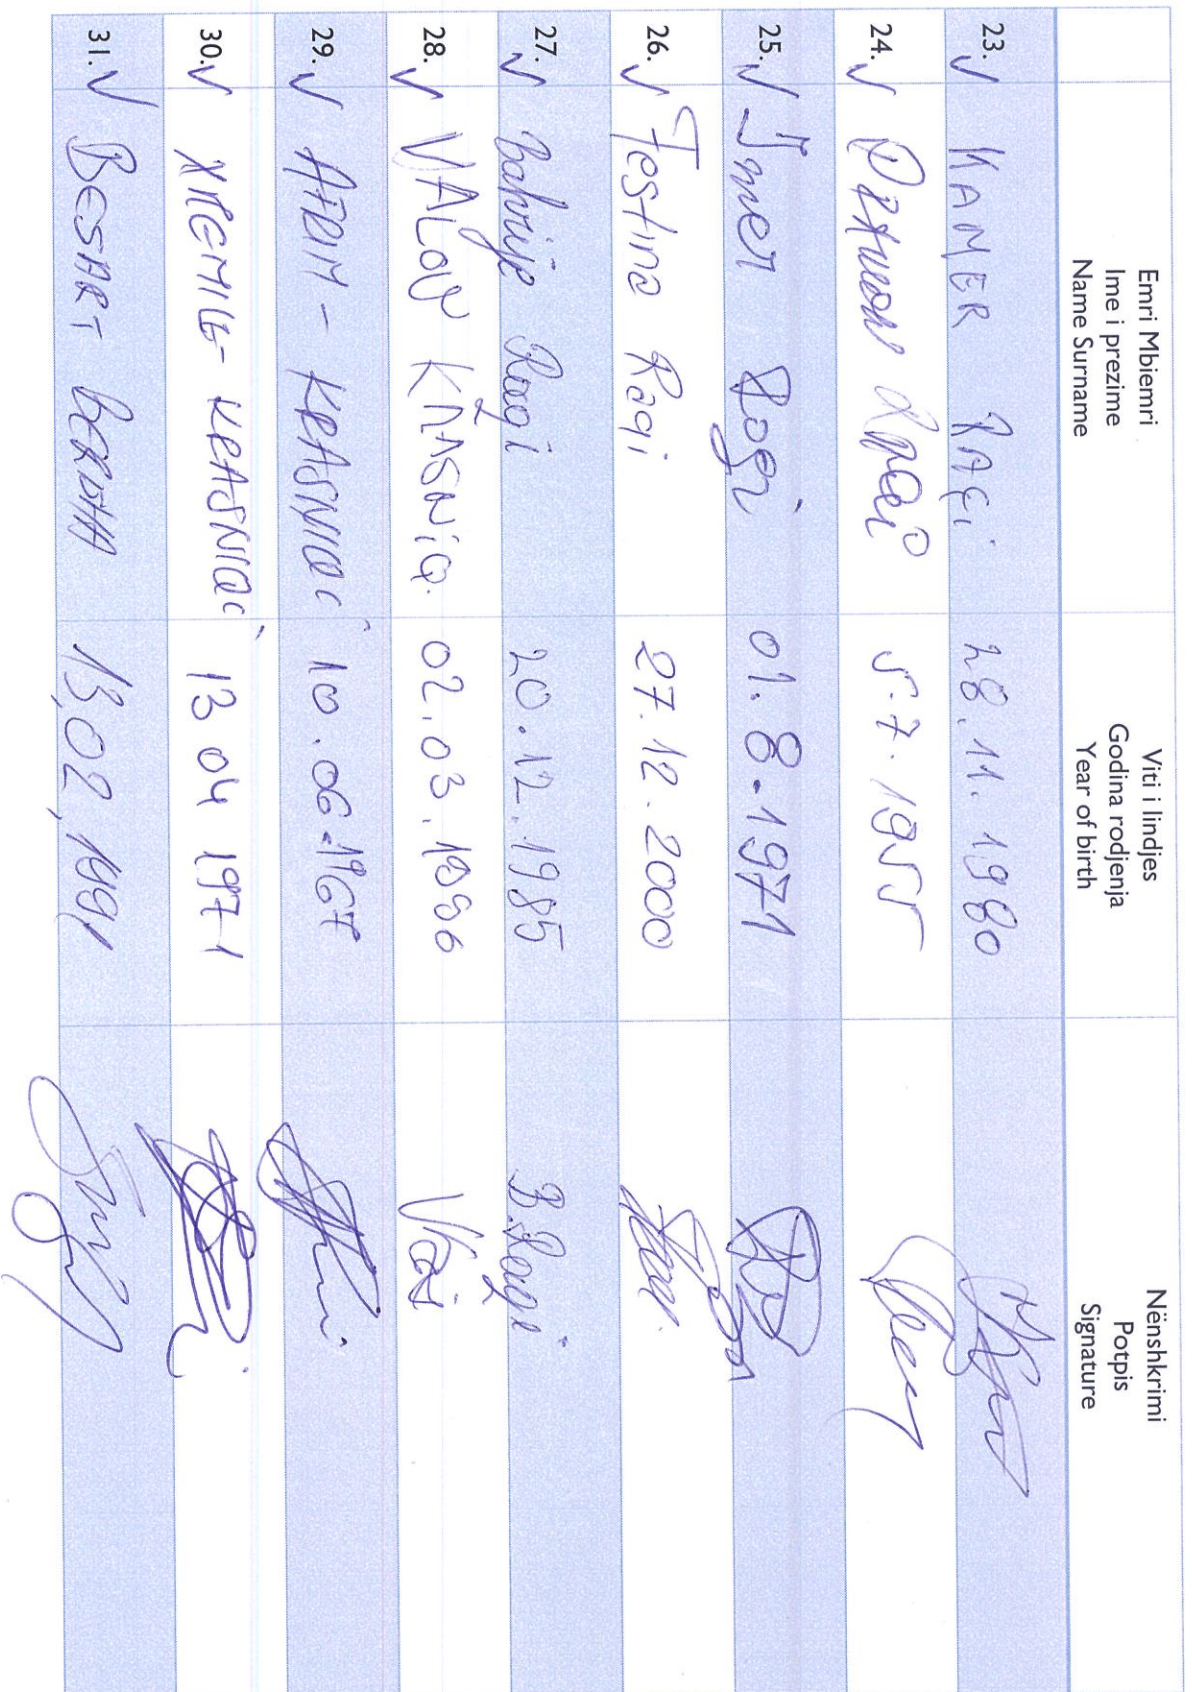 Emri Mbiemri
Ime i prezime
Name Surname
Viti i lindjes
Godina rodjenja
Year of birth
Nënshkrimi
Potpis
Signature
23. √ KAMER RAÇi 28.11.1980
24. √ 5.7.1955
25. √ Imer Rogi 01.8.1971
26. √ Festina Raqi 27.12.2000
27. √ Bahrije Raqi 20.12.1985 B.Raqi
28. √ VALON KRASNIQ. 02.03.1996
29. √ AFRIM - KRASNIQi 10.06.1967
30. √ XHEMILE - KRASNIQi 13 04 1971
31. √ BESART BERISHA 13,02,1991